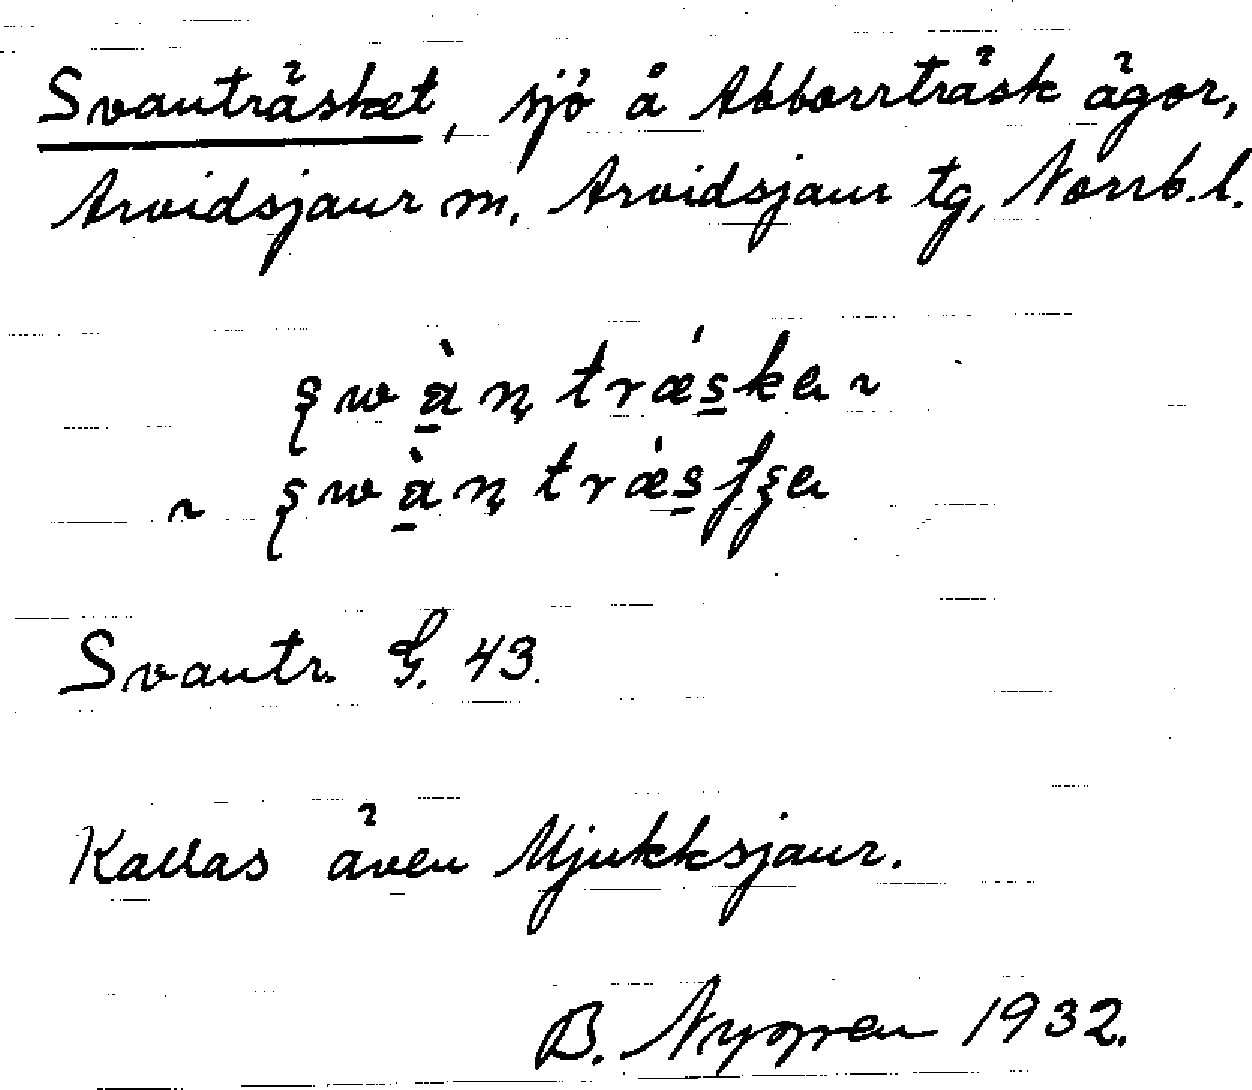 Svanträsket, sjö å Abborrträsk ägor,
Arvidsjaur m, Arvidsjaur tg, Norrb. l.
Svantr. G. 43.
Kallas även Mjukksjaur.
B. Nygren 1932.